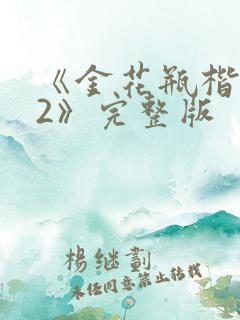 《金花瓶楷
2》完整版
楊继劃
未经同意禁止转载